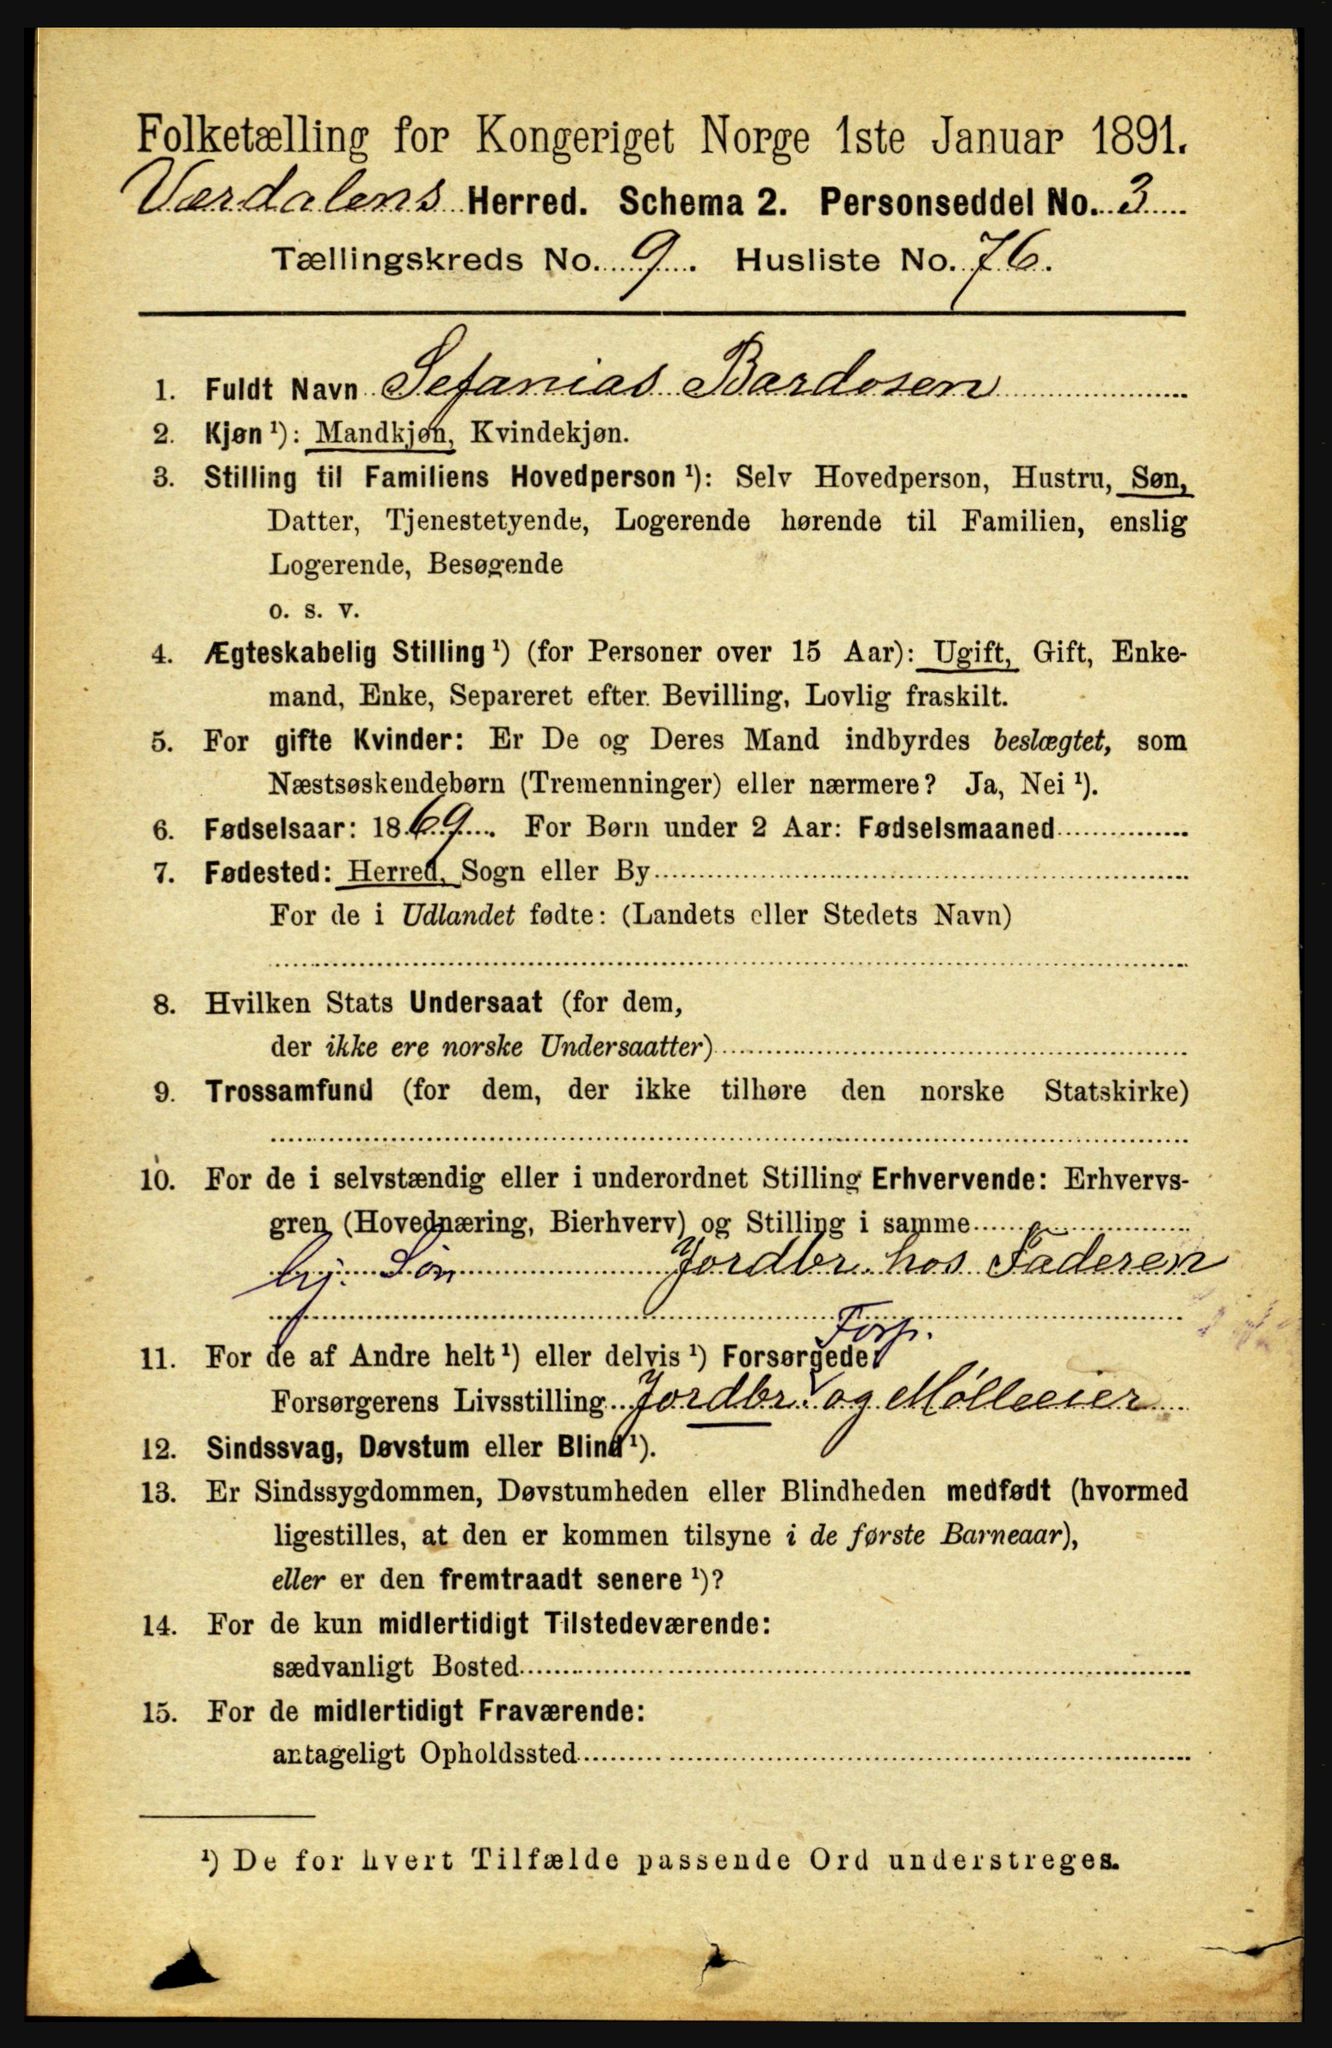 Folketælling for Kongeriget Norge 1ste Januar 1891.
Værdalens Herred. Schema 2. Personseddel No. 3
Tællingskreds No. 9. Husliste No. 76.
1. Fuldt Navn Sefanias Bardosen
2. Kjøn ¹): Mandkjøn, Kvindekjøn.
3. Stilling til Familiens Hovedperson ¹): Selv Hovedperson, Hustru, Søn,
Datter, Tjenestetyende, Logerende hørende til Familien, enslig
Logerende, Besøgende
o. s. v.
4. Ægteskabelig Stilling ¹) (for Personer over 15 Aar): Ugift, Gift, Enke-
mand, Enke, Separeret efter Bevilling, Lovlig fraskilt.
5. For gifte Kvinder: Er De og Deres Mand indbyrdes beslægtet, som
Næstsøskendebørn (Tremenninger) eller nærmere? Ja, Nei ¹).
6. Fødselsaar: 1869. For Børn under 2 Aar: Fødselsmaaned
7. Fødested: Herred, Sogn eller By
For de i Udlandet fødte: (Landets eller Stedets Navn)
8. Hvilken Stats Undersaat (for dem,
der ikke ere norske Undersaatter)
9. Trossamfund (for dem, der ikke tilhøre den norske Statskirke)
10. For de i selvstændig eller i underordnet Stilling Erhvervende: Erhvervs-
gren (Hovednæring, Bierhverv) og Stilling i samme
hj. Søn Jordbr. hos Faderen
Forp.
11. For de af Andre helt ¹) eller delvis ¹) Forsørgede:
Forsørgerens Livsstilling Jordbr. og Mølleeier
12. Sindssvag, Døvstum eller Blind ¹).
13. Er Sindssygdommen, Døvstumheden eller Blindheden medfødt (hvormed
ligestilles, at den er kommen tilsyne i de første Barneaar),
eller er den fremtraadt senere ¹)?
14. For de kun midlertidigt Tilstedeværende:
sædvanligt Bosted
15. For de midlertidigt Fraværende:
antageligt Opholdssted
¹) De for hvert Tilfælde passende Ord understreges.